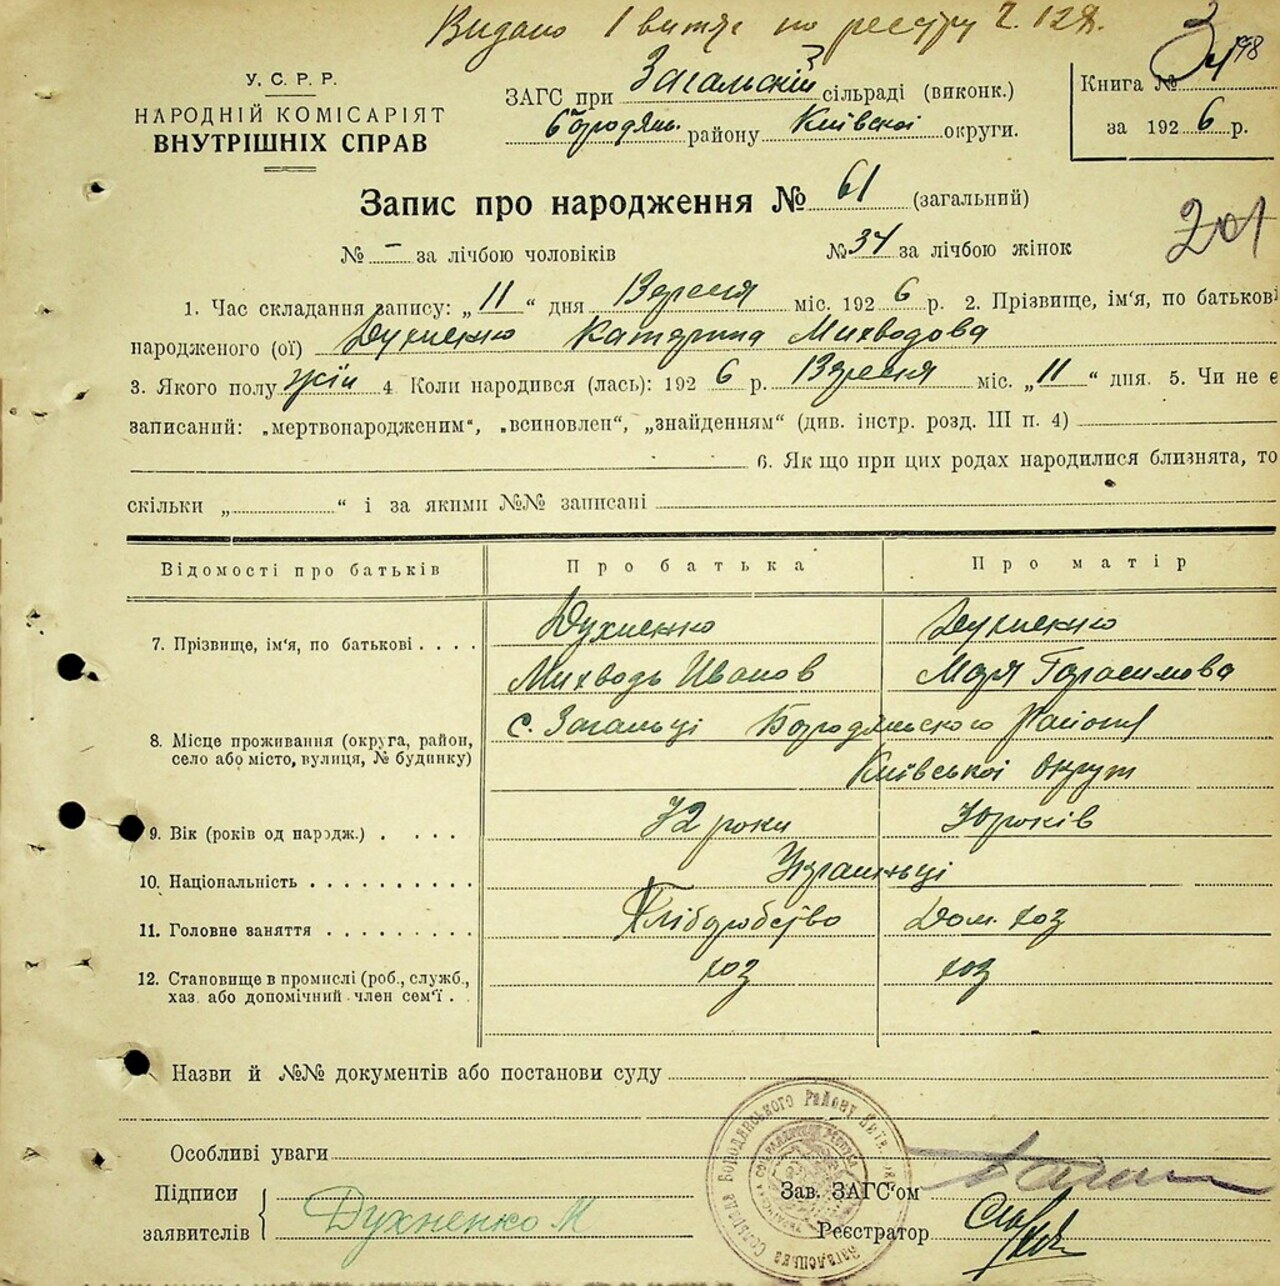 Видано 1 витяг по реєстру Ч. 128.
У. С. Р. Р.
НАРОДНІЙ КОМІСАРІЯТ
ВНУТРІШНІХ СПРАВ
ЗАГС при Загальскій сільраді (виконк.)
Бородянь. району Київскої округи.
Книга №
за 1926 р.
Запис про народження № 61 (загальний)
№ – за лічбою чоловіків № 34 за лічбою жінок
201
1. Час складання запису: „11“ дня Вересня міс. 1926 р. 2. Прізвище, ім'я, по батькові
народженого (ої) Духненко Катерина Михводова
3. Якого полу жін 4. Коли народився (лась): 1926 р. Вересня міс. „11“ дня. 5. Чи не є
записаний: „мертвонародженим“, „всиновлен“, „знайденням“ (див. інстр. розд. III п. 4)
6. Як що при цих родах народилися близнята, то
скільки „ “ і за якими №№ записані
Відомості про батьків Про батька Про матір
7. Прізвище, ім'я, по батькові Духненко Духненко
Михводь Иванов Марія Гарасимова
8. Місце проживання (округа, район, село або місто, вулиця, № будинку) с. Загальці Бородянського Району
Київської округи
9. Вік (років од народж.) 42 роки років
10. Національність Українці
11. Головне заняття Хліборобство Дом. хоз
12. Становище в промислі (роб., служб., хаз. або допомічний член сем'ї хоз хоз
Назви й №№ документів або постанови суду
Особливі уваги
Підписи
заявителів Духненко М
Зав. ЗАГС'ом
Реєстратор